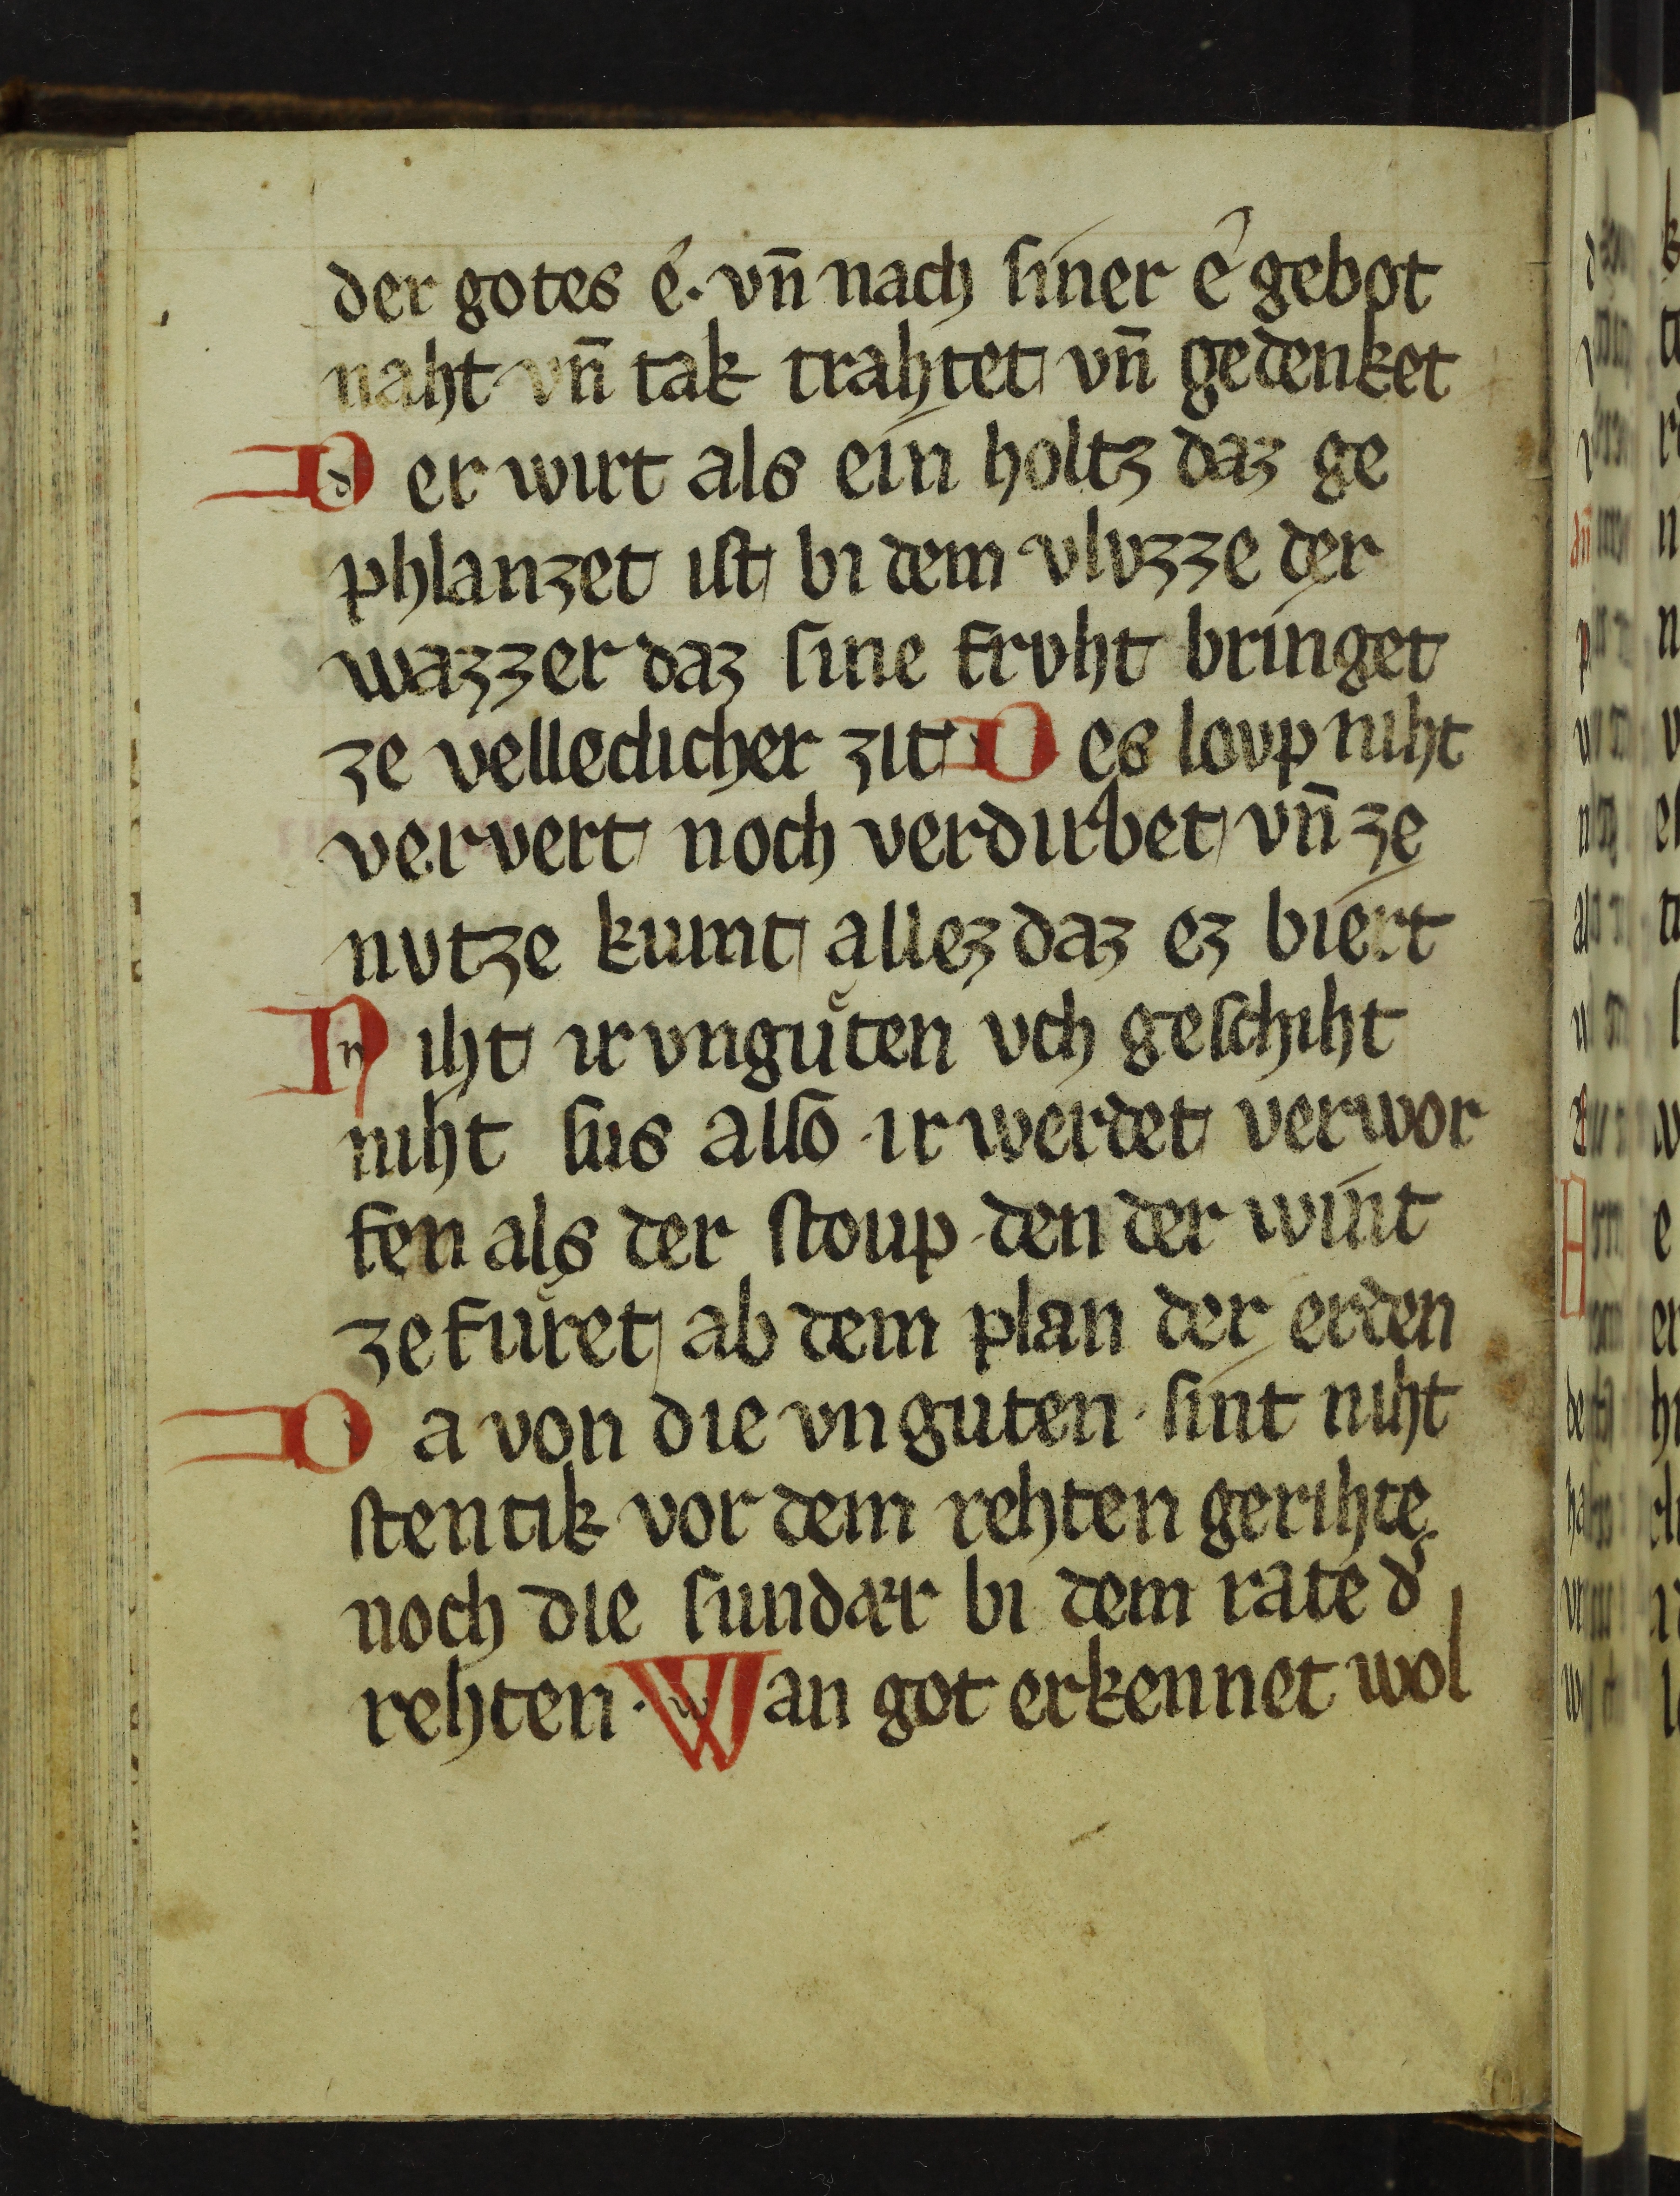 der gotes é. vn̄ nach ſiner é gebot
naht vn̄ tak trahtet vn̄ gedenket
Der wirt als ein holtz daz ge
phlanzet iſt bi dem vlvzze der
wazzer daz ſine frvht bringet
ze velleclicher zit Des lovp niht
ververt noch verdirbet vn̄ ze
nvtze kumt allez daz ez biert
Niht ir vngůten vch geſchiht
niht ſus alſo ir werdet verwor
fen als der ſtoup den der wint
zefůret ab dem plan der erden
Da von die vnguten ſint niht
ſtentik vor dem rehten gerihte.
noch die ſundær bi dem rate d͛
rehten. Wan got erkennet wol